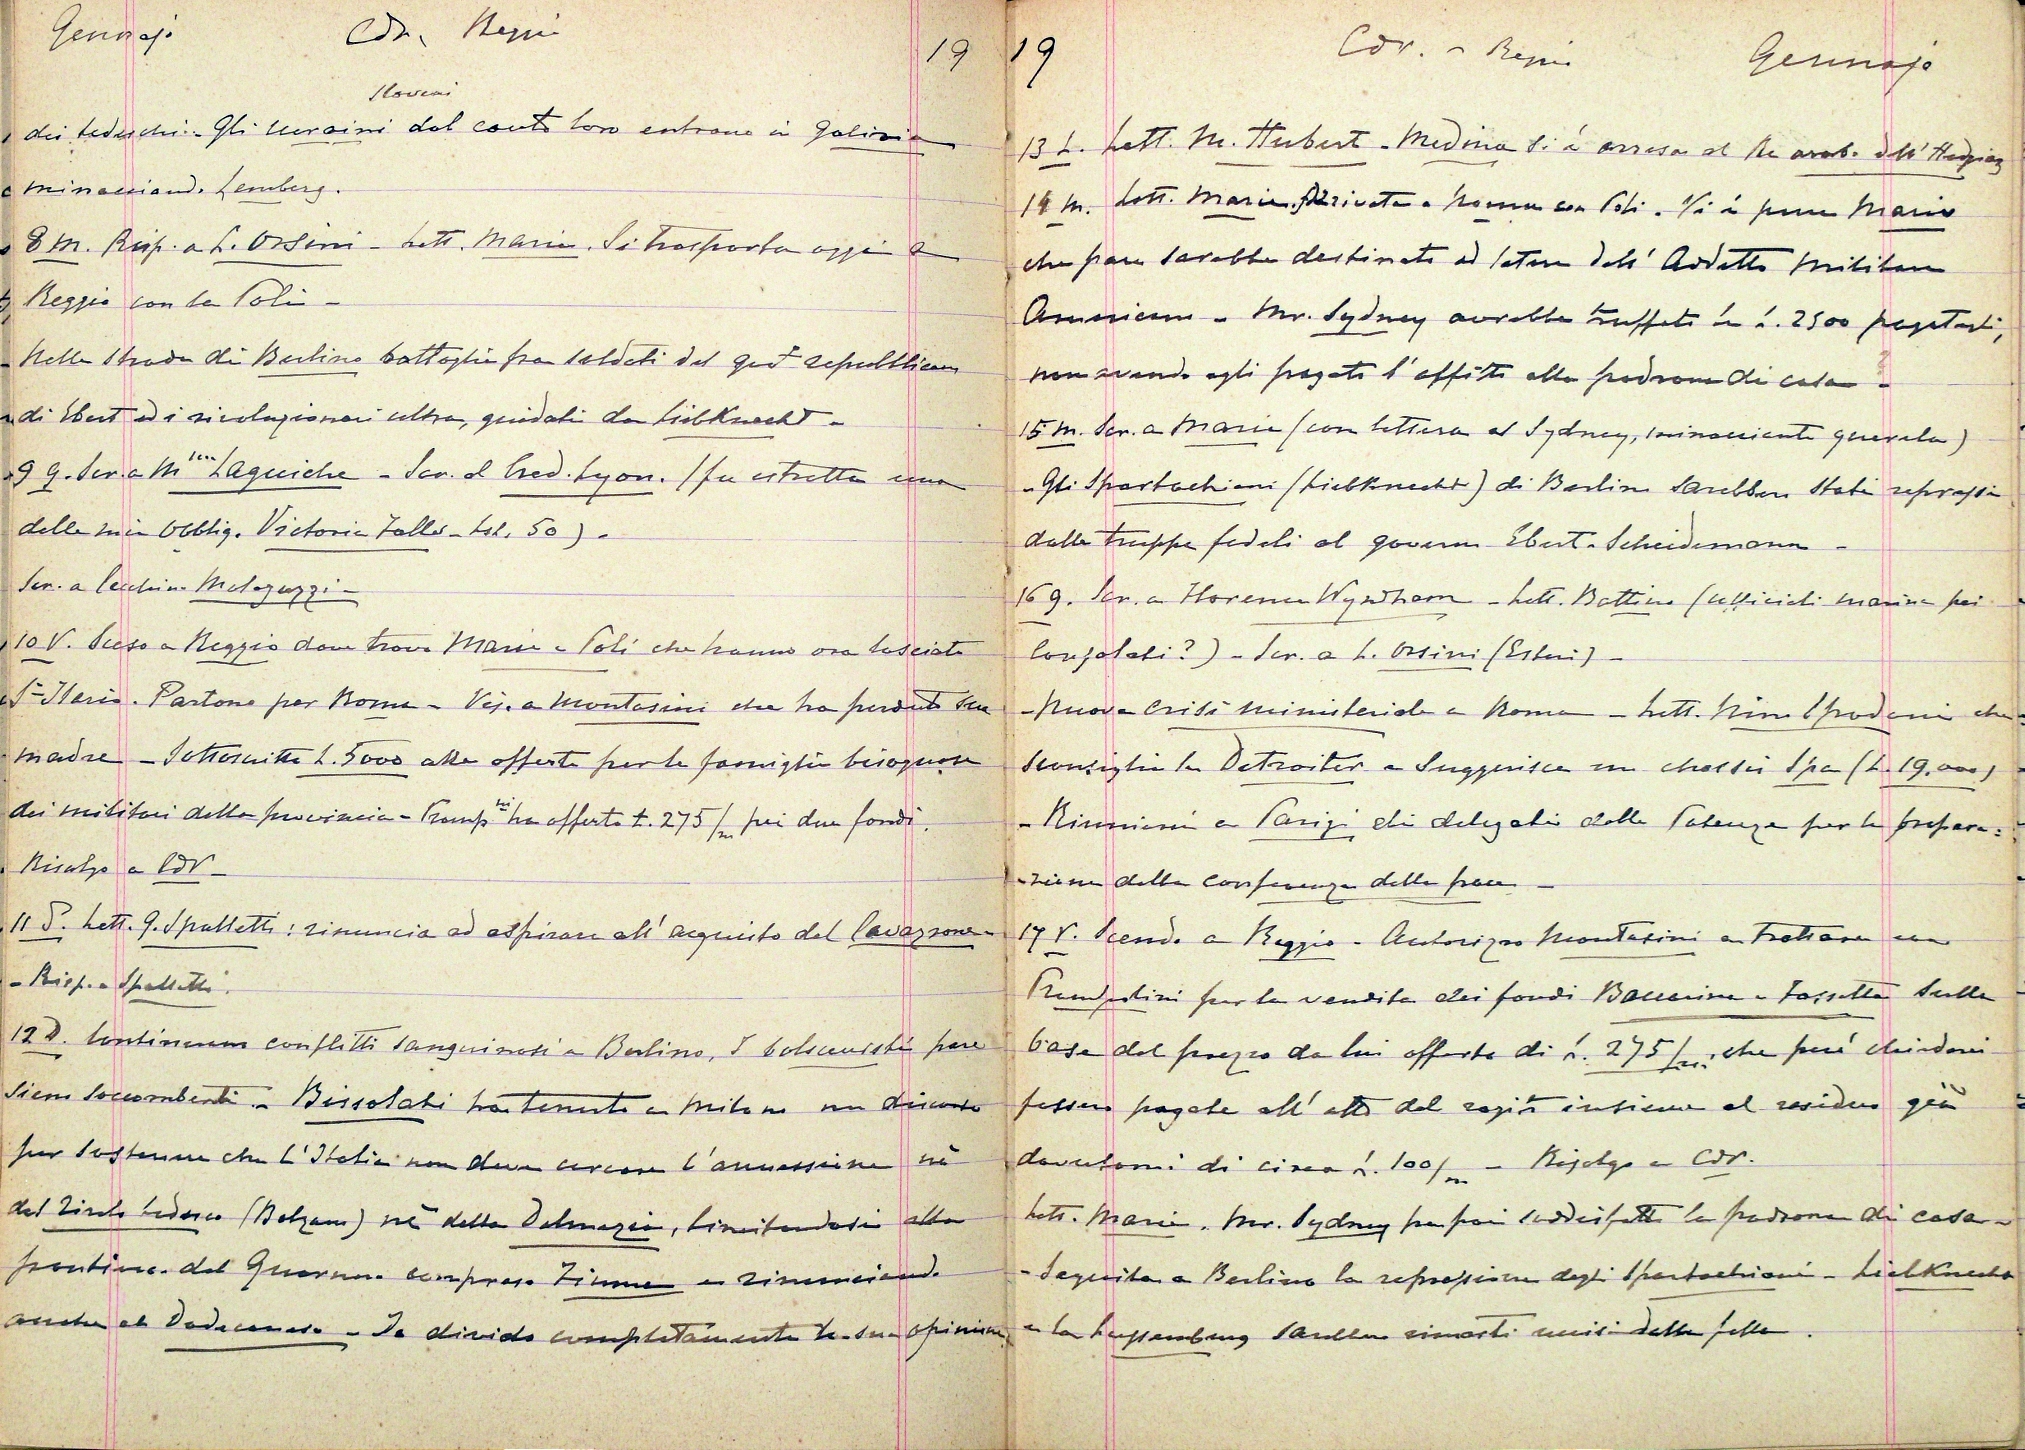 Gennajo Cdr. Reggio 19
Sloveni
dei tedeschi. - Gli ucraini dal canto loro entrano in Galizia
minacciando Lemberg.
8 M. Risp. a L. Orsini - Lett. Marie. Si trasporta oggi a
Reggio con la Poli -
- Nelle strade di Berlino battaglia fra soldati del govº repubblicano
di Ebert ed i rivoluzionari ultra, guidati da Liebknecht -
9 G. Scr. a Mme Laguiche - Scr. al Cred. Lyon. (fu estratta una
delle mie obblig. Victoria Falls - Lst. 50) -
Scr. a Cecchino Malaguzzi -
10 V. Sceso a Reggio dove trovo Marie e Poli che hanno ora lasciato
S. Ilario. Partono per Roma - Vis. a Montasini che ha perduto sua
madre - Sottoscritte L. 5000 alle offerte per le famiglie bisognose
dei militari della provincia - Prampni ha offerto £. 275/m pei due fondi.
Risalgo a Cdr -
11 S. Lett. G. Spalletti: rinuncia ad aspirare all'acquisto del Cavazzone -
- Risp. a Spalletti.
12 D. Continuano conflitti sanguinosi a Berlino, I bolscevisti pare
sieno soccombenti. - Bissolati ha tenuto a Milano un discorso
per sostenere che l'Italia non deve cercare l'annessione nè
del Tirolo tedesco (Bolzano) nè della Dalmazia, limitandosi alla
frontiera del Quarnero compreso Fiume e rinunciando
anche al Dodecaneso - Io divido completamente la sua opinione.
19 Cdr. - Reggio Gennajo
13 L. Lett. M. Hubert - Medina si è arresa al Re arabo dell'Hedjaz
14 M. Lett. Marie. Arrivata a Roma con Poli. Vi è pure Mario
che pare sarebbe destinato ad latere dell'Addetto Militare
Americano - Mr. Sydney avrebbe truffato le £. 2500 pagategli,
non avendo egli pagato l'affitto alla padrona di casa -
15 M. Scr. a Marie (con lettera al Sydney, minacciante querela)
- Gli Spartachiani (Liebknecht) di Berlino sarebbero stati repressi
dalle truppe fedeli al governo Ebert-Scheidemann -
16 G. Scr. a Florence Wyndham - Lett. Battino (ufficiali marina pei
Consolati?) - Scr. a L. Orsini (Esteri) -
- Nuova crisi ministeriale a Roma - Lett. Nino Spadoni che
sconsiglia la Detroiter e suggerisce un chassis Spa (L. 19.000)
- Riunioni a Parigi dei delegati delle Potenze per la prepara=
-zione della conferenza della pace -
17 V. Scendo a Reggio - Autorizzo Montasini a trattare con
Prampolini per la vendita dei fondi Baccarina e Fossetta sulla
base del prezzo da lui offerto di £. 275/m. che però chiederei
fossero pagate all'atto del rogito insieme al residuo già
dovutomi di circa £. 100/m - Risalgo a Cdr.
Lett. Marie. Mr. Sydney ha poi soddisfatto la padrona di casa -
- Seguita a Berlino la repressione degli Spartachiani - Liebknecht
e la Luxemburg sarebbero rimasti uccisi dalla folla.